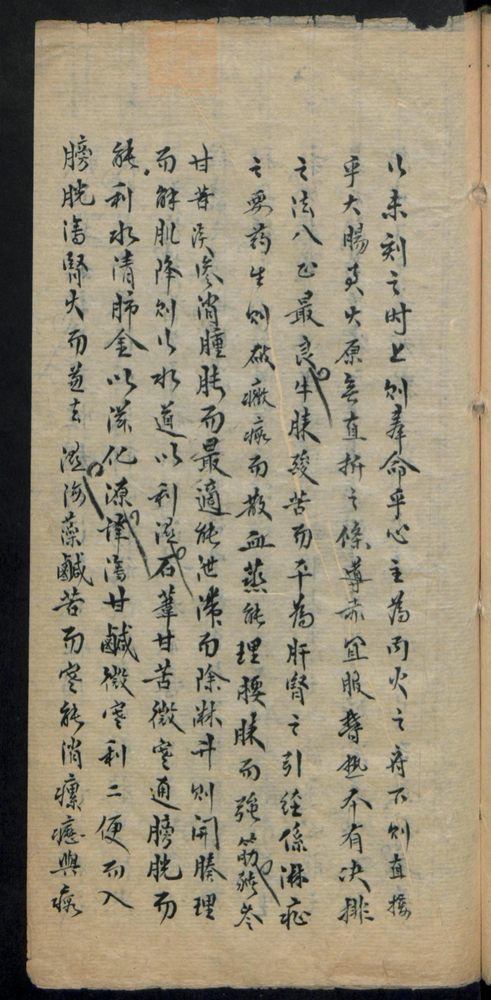 以來刻之時上則奉命乎心主為丙火之府下則直接
乎大腸真火原無直折之條導赤宜服瞀熱不有决排
之法八正最良牛膝酸苦而平為肝腎之引經係淋症
之要药生則破癥瘕而散血蒸能理腰膝而强筋猪苓
甘苦淡滲消腫脹而最適能泄滯而除淋升則開腠理
而解肌降則以水道以利濕石葦甘苦微寒通膀胱而
能利水清肺金以滋化源澤瀉甘鹹微寒利二便而入
膀胱瀉腎火而並去濕海藻鹹苦而寒能消瘰癧與瘕